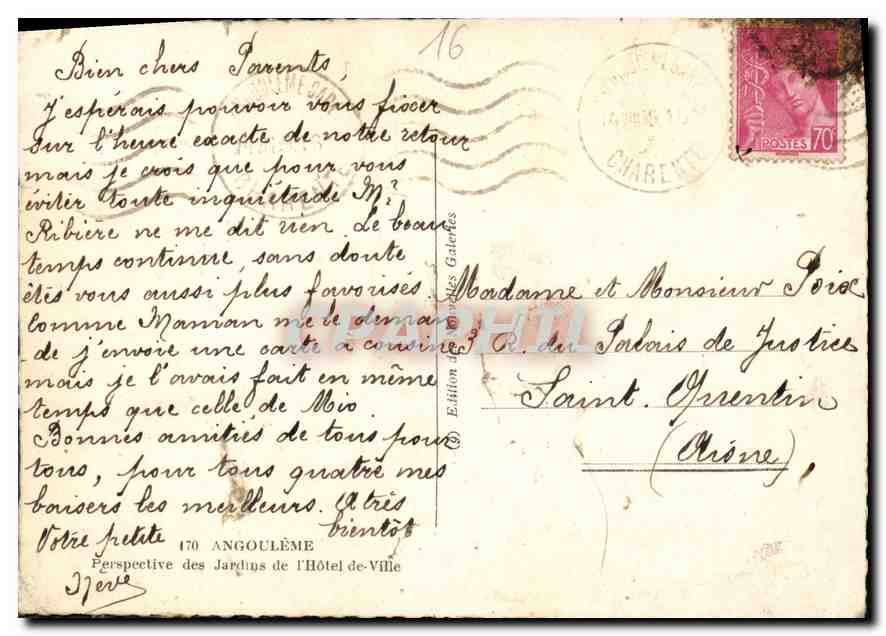 16
Bien chers Parents,
J'espérais pouvoir vous fixer
sur l'heure exacte de notre retour
mais je crois que pour vous
éviter toute inquiétude Mr
Ribière ne me dit rien. Le beau
temps continue, sans doute
êtes vous aussi plus favorisés.
Comme Maman me le deman
de j'envoie une carte à cousine
mais je l'avais fait en même
temps que celle de Mio.
Bonnes amitiés de tous pour
tous, pour tous quatre mes
baisers les meilleurs. A très
bientôt
Votre petite
170 ANGOULÊME
Perspective des Jardins de l'Hôtel de-Ville
(9) Edition des Nouvelles Galeries
CHARENTE
POSTES 70c
Madame et Monsieur Poix
3 R. du Palais de Justice
Saint. Quentin
(Aisne)